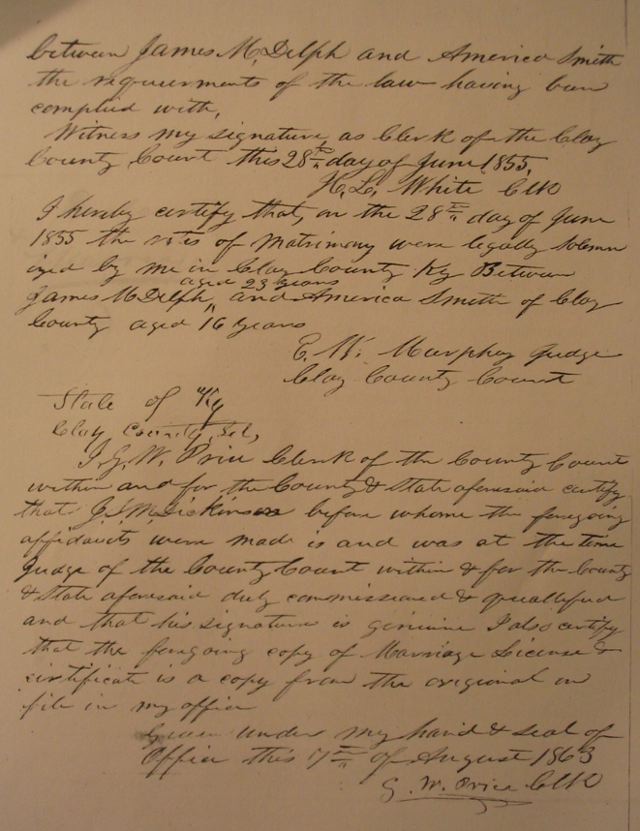 between James M. Delph and America Smith
the requerments of the law having been
complied with,
Witness my signature as Clerk of the Clay
County Court this 28th day of June 1855,
H. L. White Clk
I hereby certify that, on the 28th day of June
1855 the rites of Matrimony were legally solemn
ized by me in Clay County Ky Between
aged 23 years
James M Delph, and America Smith of Clay
County aged 16 years
E. W. Murphy Judge
Clay County Court
State of Ky
Clay County, Sct,
I, G. W. Price Clerk of the County Court
within and for the County & State aforesaid certify
that before whome the foregoing
affidavits were made is and was at the time
Judge of the County Court within & for the County
& State aforesaid duly commissioned & quallified
and that his signature is genuine I also certify
that the foregoing copy of Marriage License &
certificate is a copy from the origional on
file in my office
Given under my hand & seal of
Office this 17th of August 1863
G. W. Price Clk